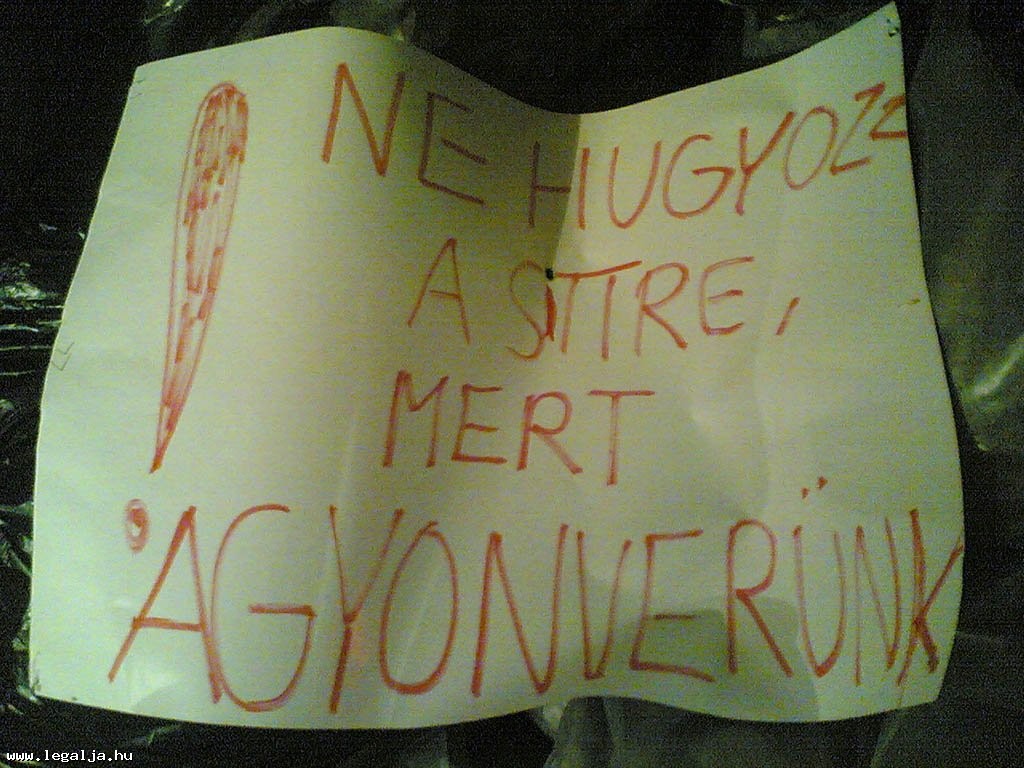 ! NE HUGYOZZ
A SITTRE,
MERT
AGYONVERÜNK
www.legalja.hu